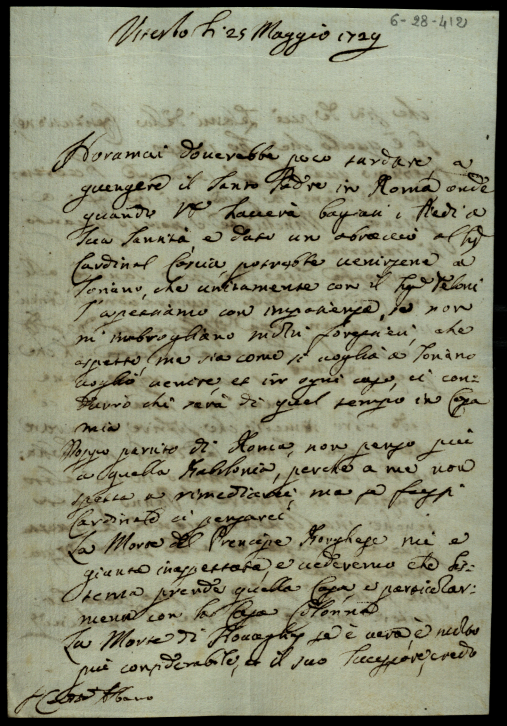 6-28-412
Viterbo li 25 Maggio 1729
Horamai doverebbe poco tardare a
giungere il Santo Padre in Roma onde
quando haverà bagiati i Piedi a
Sua Santità e dato un abraccio al Sig
Cardinal Coscia potrebbe venirsene a
che unitamente con il Sig
l'aspettiamo con impazienza, se non
m'imbrogliano molti forestieri, che
aspetto, ma sia come si voglia a
voglio venire, et in ogni caso, ci con=
durrò chi serà di quel tempo in Casa
mia
Doppo partito di Roma, non penso più
a quella Babilonia, perche a me non
spetta a rimediarci, ma se fossi
Cardinale ci pensarei
La Morte del Prencipe Borghese mi è
giunta inaspettata, e vederemo che Si=
stema prende quella Casa e particolar=
mente con la Casa Colonna
La Morte di se è vera, è molto
più considerabile, et il suo Successore, credo
Albano